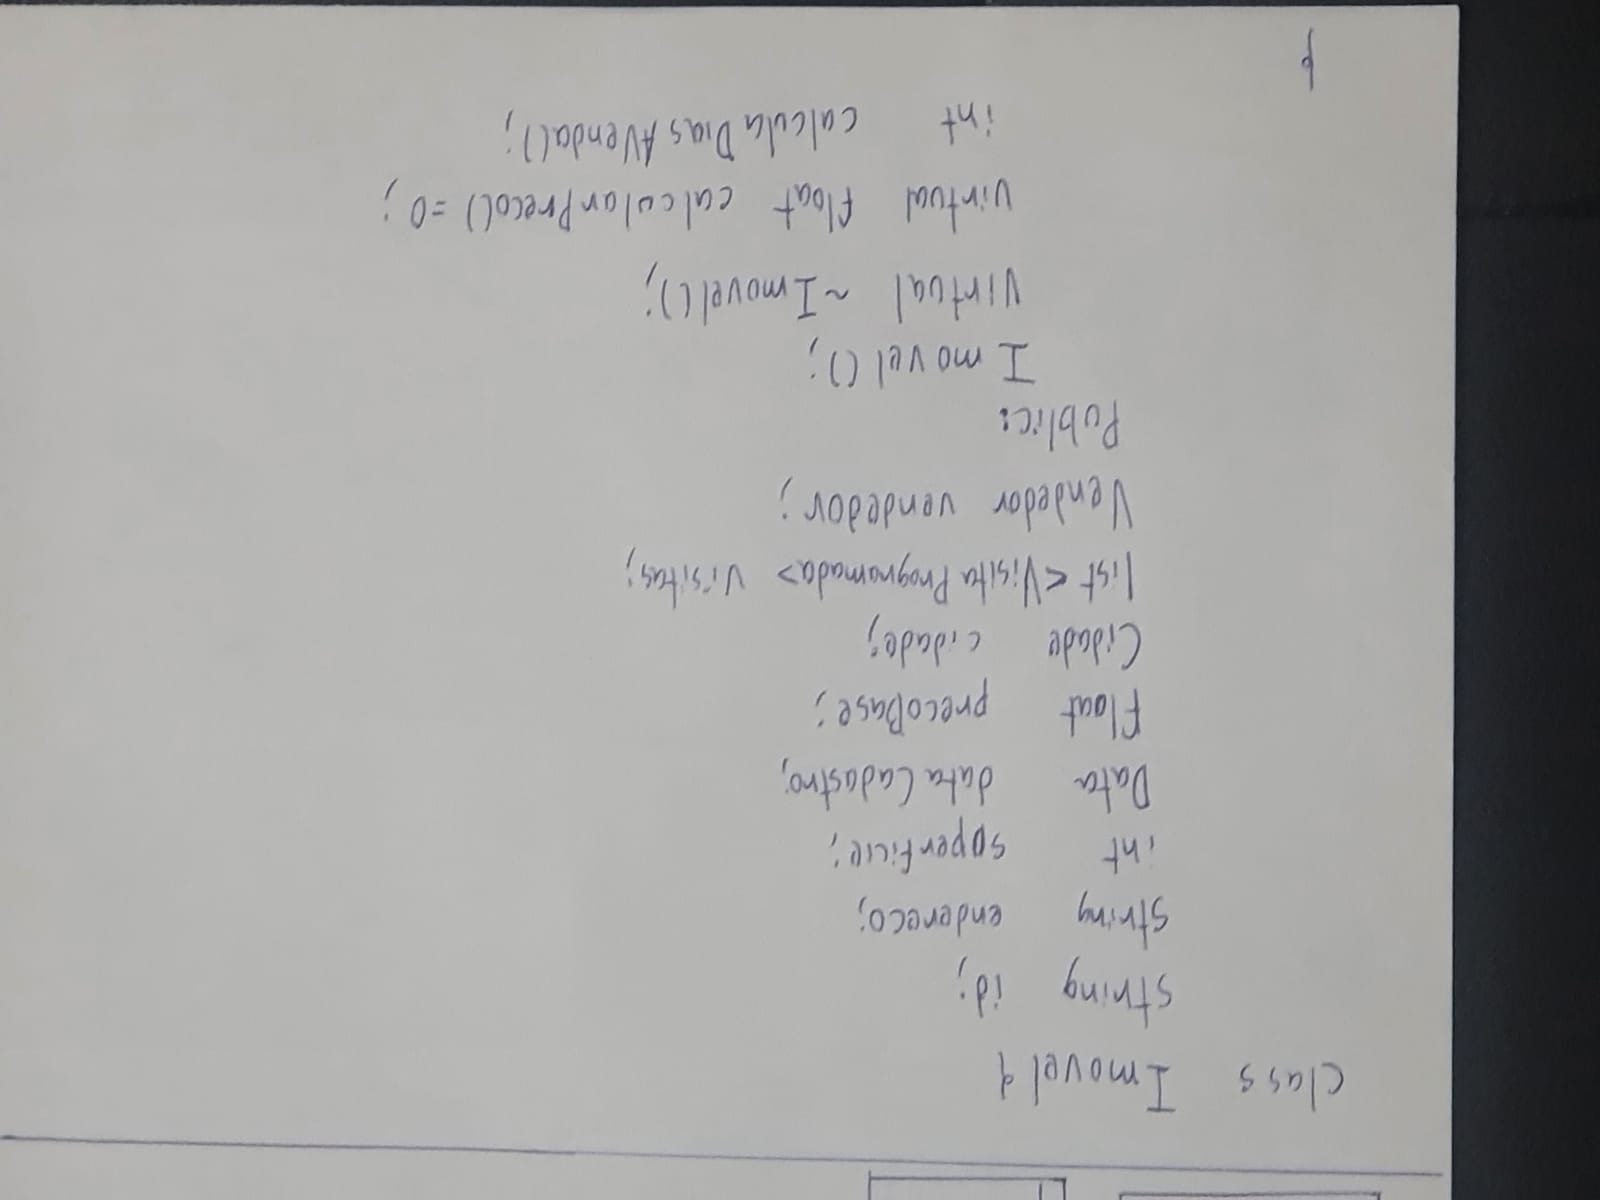 class Imovel {
string id;
string endereco;
int superficie;
Data dataCadastro;
float precoBase;
Cidade cidade;
list <VisitaProgramada> visitas;
Vendedor vendedor;
Public:
Imovel();
virtual ~Imovel();
virtual float calcularPreco() =0;
int calculaDiasAVenda();
}